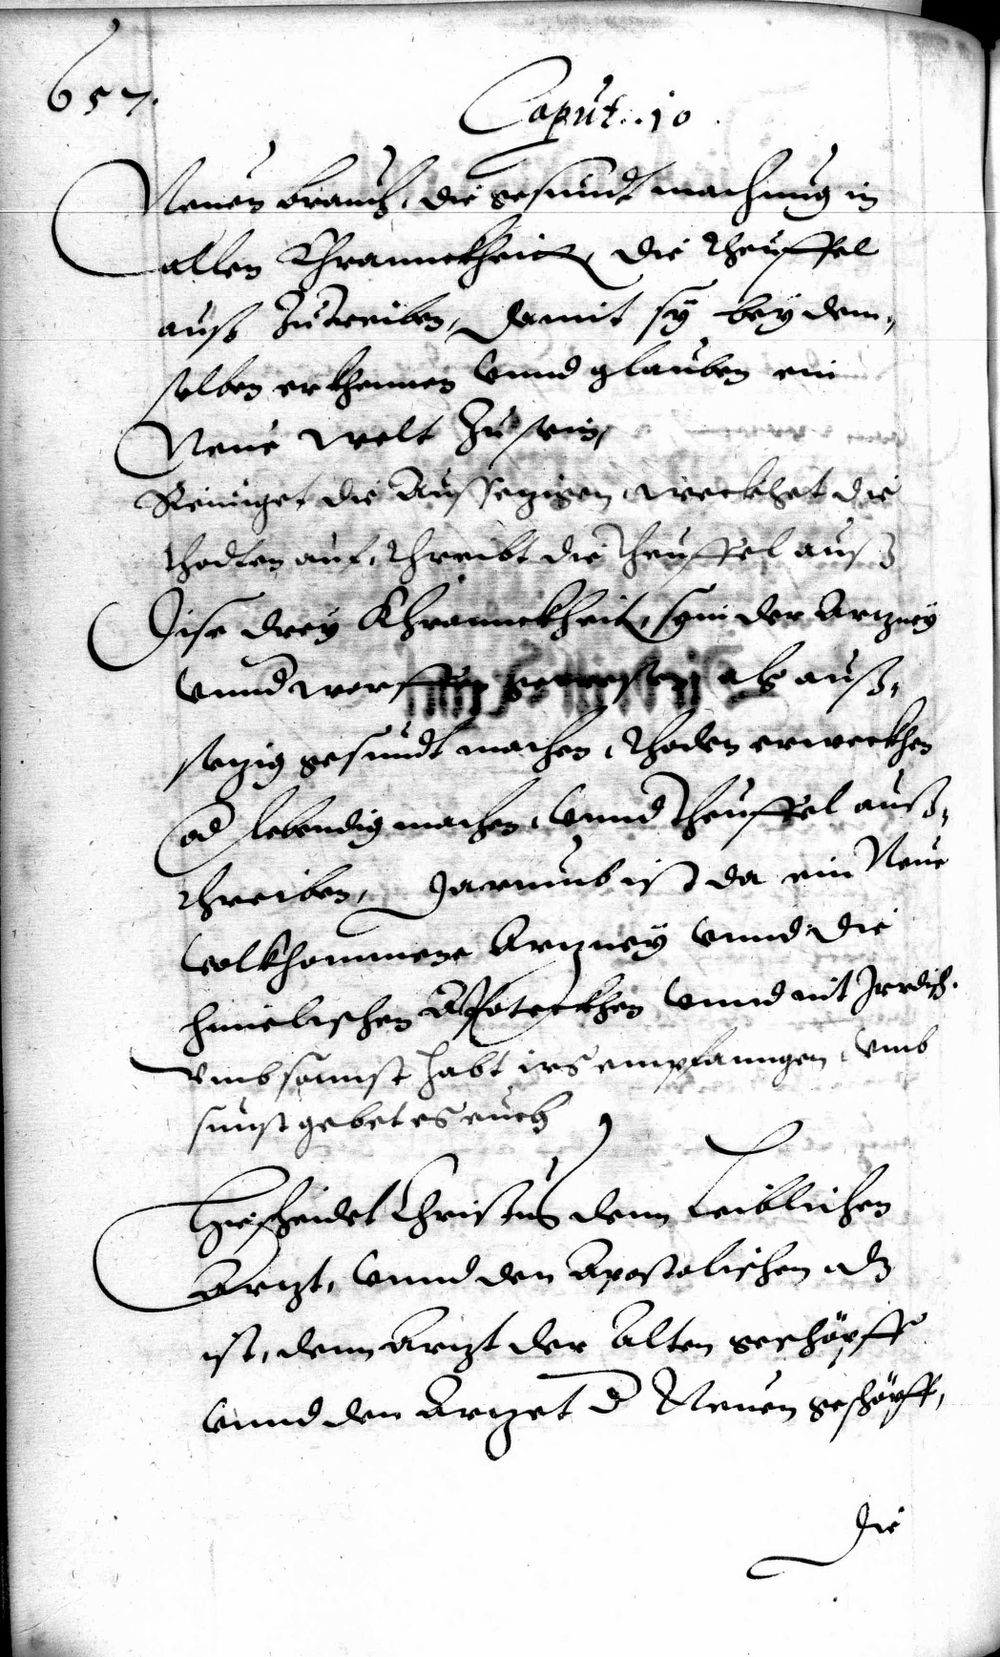 657.
Caput. 10
Neuen brauch, die gesundt machung in
allen Khrannckheit, die theuffel
auß zutreiben, damit sÿ beÿ dem,
selben erkhennen vnnd glauben ein
Neue welt zu sein,
Reiniget die Außsezigen, weckhet die
thodten auf, threibt die theuffel auß
Dise dreÿ Khranckheit, sein der Arzneÿ
vnnd gewesen als auß,
sezig gesundt machen, thoden erweckhen
od lebendig machen, vnnd theuffel auß,
threiben, Darumb ist da ein Neue
volkhommene Arzneÿ vnnd die
himelischen Apoteckhen vnnd nit Irrdisch.
vmb sounst habt irs empfanngen, vmb
sunst gebet es euch
Hie scheidet Christus denn leiblichen
Arzt, vnnd den Apostolischen als
ist, denn Arzt der Alten geschöpff
vnnd den Arzet d Neuen geschöpff,
Die